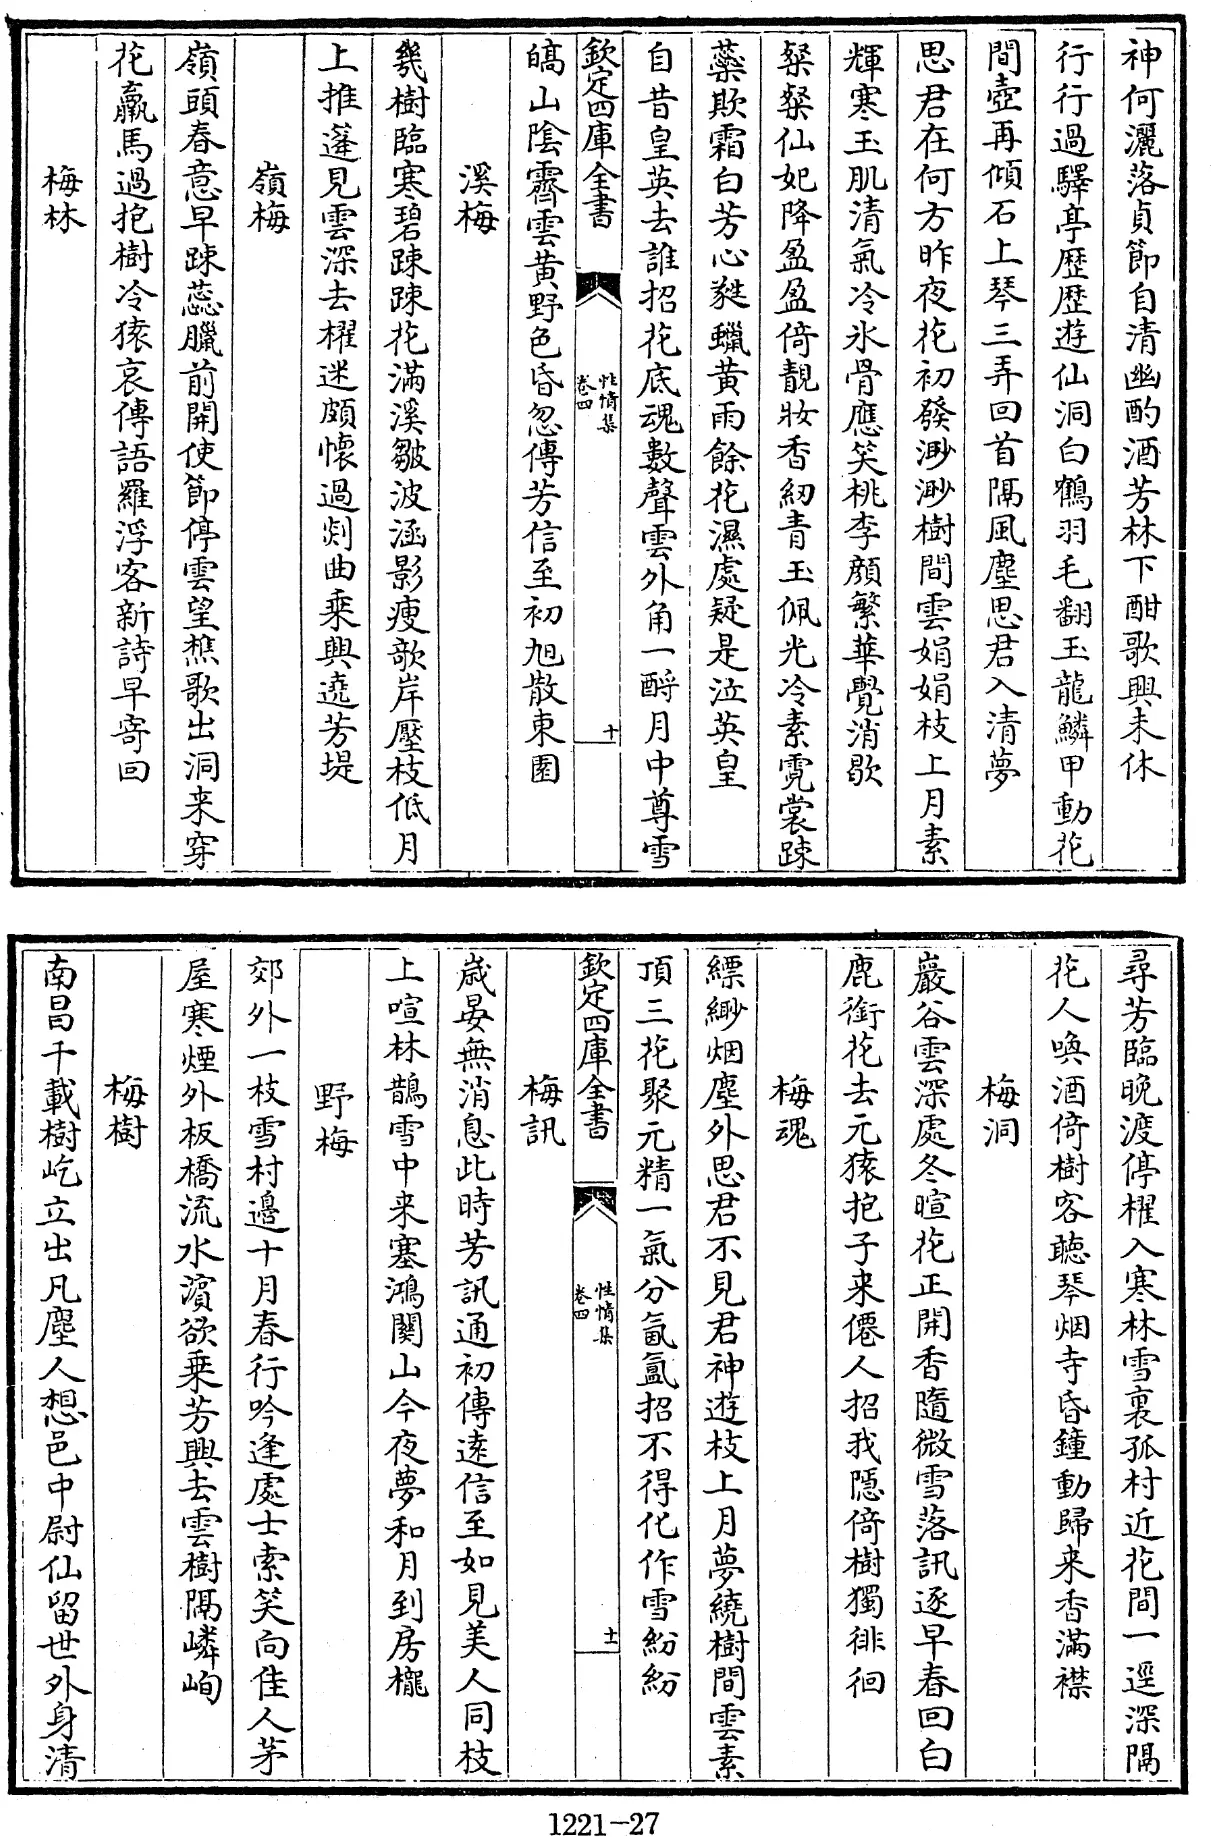 神何灑落貞節自清幽酌酒芳林下酣歌興未休
行行過驛亭歷歷遊仙洞白鶴羽毛翻玉龍鱗甲動花
間壺再傾石上琴三弄回首隔風塵思君入清夢
思君在何方昨夜花初發渺渺樹間雲娟娟枝上月素
輝寒玉肌清氣冷氷骨應笑桃李顔繁華覺消歇
粲粲仙妃降盈盈倚靚妝香紉青玉佩光冷素霓裳踈
蘂欺霜白芳心㪺蠟黄雨餘花濕處疑是泣英皇
自昔皇英去誰招花底魂數聲雲外角一酹月中尊雪
欽定四庫全書
性情集
卷四
十
皜山陰霽雲黄野色昏忽傳芳信至初旭散東園
溪梅
幾樹臨寒碧踈踈花滿溪皺波涵影瘦欹岸壓枝低月
上推蓬見雲深去櫂迷頗懷過剡曲乗興遶芳堤
嶺梅
嶺頭春意早踈蕊臘前開使節停雲望樵歌出洞来穿
花羸馬過抱樹冷猿哀傳語羅浮客新詩早寄回
梅林
尋芳臨晚渡停櫂入寒林雪裏孤村近花間一逕深隔
花人喚酒倚樹客聽琴烟寺昏鐘動歸来香滿襟
梅洞
巖谷雲深處冬暄花正開香隨微雪落訊逐早春回白
鹿銜花去元猿抱子来僊人招我隱倚樹獨徘徊
梅魂
縹緲烟塵外思君不見君神遊枝上月夢繞樹間雲素
頂三花聚元精一氣分氤氳招不得化作雪紛紛
欽定四庫全書
性情集
卷四
十一
梅訊
歳晏無消息此時芳訊通初傳逺信至如見美人同枝
上喧林鵲雪中来塞鴻關山今夜夢和月到房櫳
野梅
郊外一枝雪村邊十月春行吟逢處士索笑向佳人茅
屋寒煙外板橋流水濵欲乗芳興去雲樹隔嶙峋
梅樹
南昌千載樹屹立出凡塵人想邑中尉仙留世外身清
1221-27